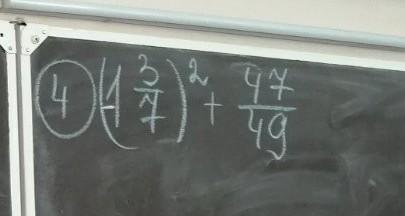 4 (-1 3/7)² + 47/49